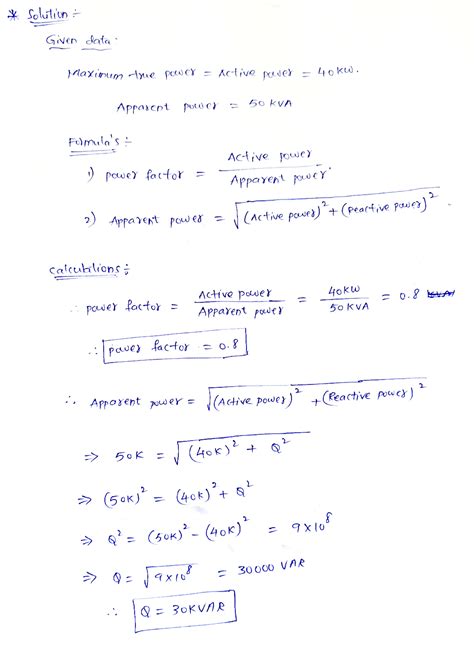 * Solution :-
Given data.
Maximum true power = Active power = 40 KW.
Apparent power = 50 KVA
Formula's :-
1) power factor = Active power / Apparent power.
2) Apparent power = √(Active power)² + (Reactive power)².
calculations :-
∴ power factor = Active power / Apparent power = 40KW / 50 KVA = 0.8
∴ power factor = 0.8
∴ Apparent power = √(Active power)² + (Reactive power)²
⇒ 50K = √(40K)² + Q²
⇒ (50K)² = (40K)² + Q²
⇒ Q² = (50K)² - (40K)² = 9×10⁸
⇒ Q = √9×10⁸ = 30000 VAR
∴ Q = 30KVAR